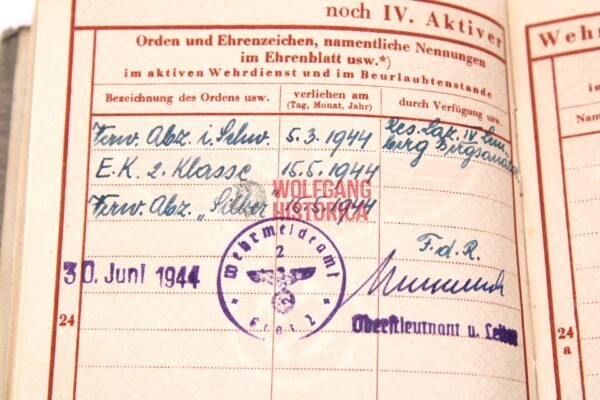 noch IV. Aktiver
Orden und Ehrenzeichen, namentliche Nennungen
im Ehrenblatt usw.*)
im aktiven Wehrdienst und im Beurlaubtenstande
Bezeichnung des Ordens usw.
verliehen am
(Tag, Monat, Jahr)
durch Verfügung usw.
Verw. Abz. i. Schw. 5.3.1944 Res. Laz. IV Lem
berg
E.K. 2. Klasse 15.5.1944
Verw. Abz. „Silber" 16.5.1944
WOLFGANG
HISTORICA
F. d. R.
30. Juni 1944
Wehrmeldeamt
2
Graz 2
Oberstleutnant u. Leiter
24
Wehr
in
Nam
24
a